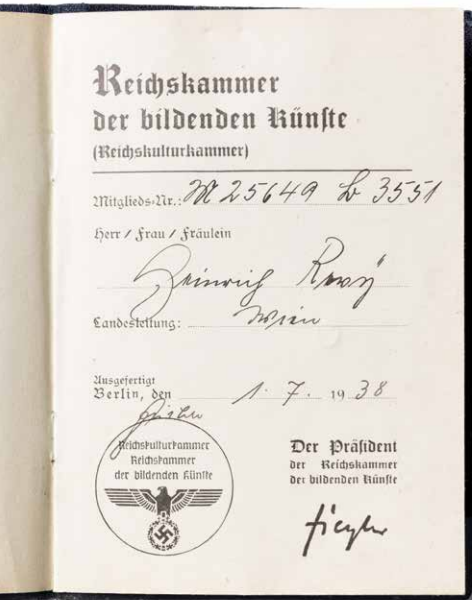 Reichskammer
der bildenden Künste
(Reichskulturkammer)
Mitglieds-Nr.: M 25649 B 3551
Herr / Frau / Fräulein
Heinrich Revÿ
Landesleitung: Wien
Ausgefertigt
Berlin, den 1. 7. 1938
Reichskulturkammer
Reichskammer
der bildenden Künste
Der Präsident
der Reichskammer
der bildenden Künste
Ziegler